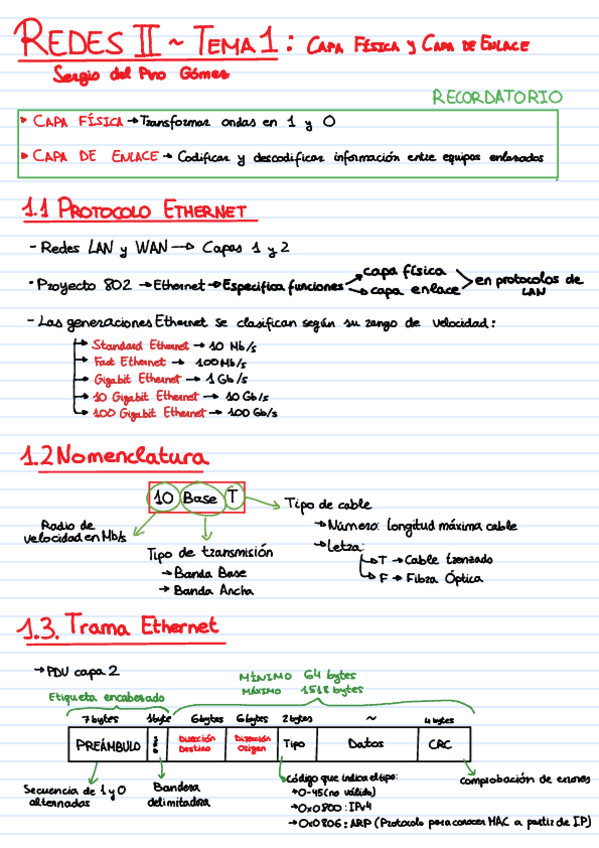 REDES II ~ TEMA 1: CAPA FÍSICA y CAPA DE ENLACE
Sergio del Pino Gómez
RECORDATORIO
CAPA FÍSICA → Transformar ondas en 1 y 0
CAPA DE ENLACE → Codificar y descodificar información entre equipos enlazados
1.1 PROTOCOLO ETHERNET
- Redes LAN y WAN → Capas 1 y 2
- Proyecto 802 → Ethernet → Especifica funciones → capa física → capa enlace > en protocolos de LAN
- Las generaciones Ethernet se clasifican según su rango de velocidad:
→ Standard Ethernet → 10 Mb/s
→ Fast Ethernet → 100 Mb/s
→ Gigabit Ethernet → 1 Gb/s
→ 10 Gigabit Ethernet → 10 Gb/s
→ 100 Gigabit Ethernet → 100 Gb/s
1.2 Nomenclatura
10 Base T
Radio de velocidad en Mb/s
Tipo de transmisión
→ Banda Base
→ Banda Ancha
Tipo de cable
→ Número: longitud máxima cable
→ Letra:
→ T → Cable trenzado
→ F → Fibra Óptica
1.3. Trama Ethernet
→ PDU capa 2
MÍNIMO 64 bytes
MÁXIMO 1518 bytes
Etiqueta encabezado
7 bytes 1 byte 6 bytes 6 bytes 2 bytes ~ 4 bytes
PREÁMBULO Dirección Destino Dirección Origen Tipo Datos CRC
Secuencia de 1 y 0 alternados
Bandera delimitadora
Código que indica el tipo:
→ 0-45 (no válido)
→ 0x0800: IPv4
→ 0x0806: ARP (Protocolo para conocer MAC a partir de IP)
comprobación de errores